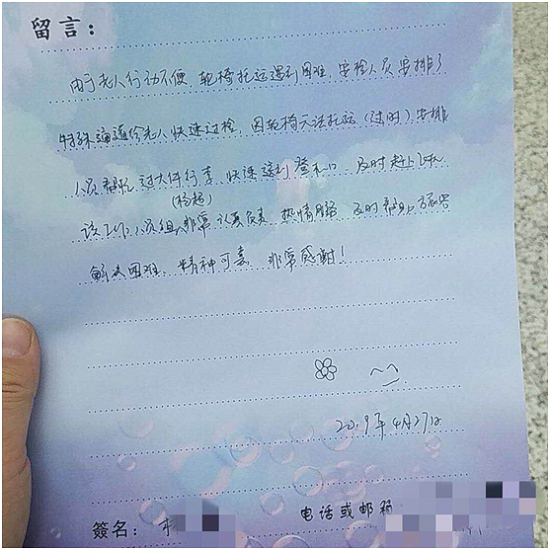 留言：
由于老人行动不便，轮椅托运遇到困难，安检人员安排了
特殊通道给老人快速过检，因轮椅无法托运（过时），安排
人员帮忙过大件行李，快速送到登机口，及时赶上飞机
（杨超）
该工作人员组非常认真负责，热情服务，及时帮助旅客
解决困难，精神可嘉，非常感谢！
2019年4月27日
簽名：
电话或邮箱